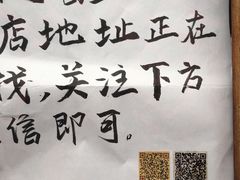 店地址正在
找,关注下方
信即可。